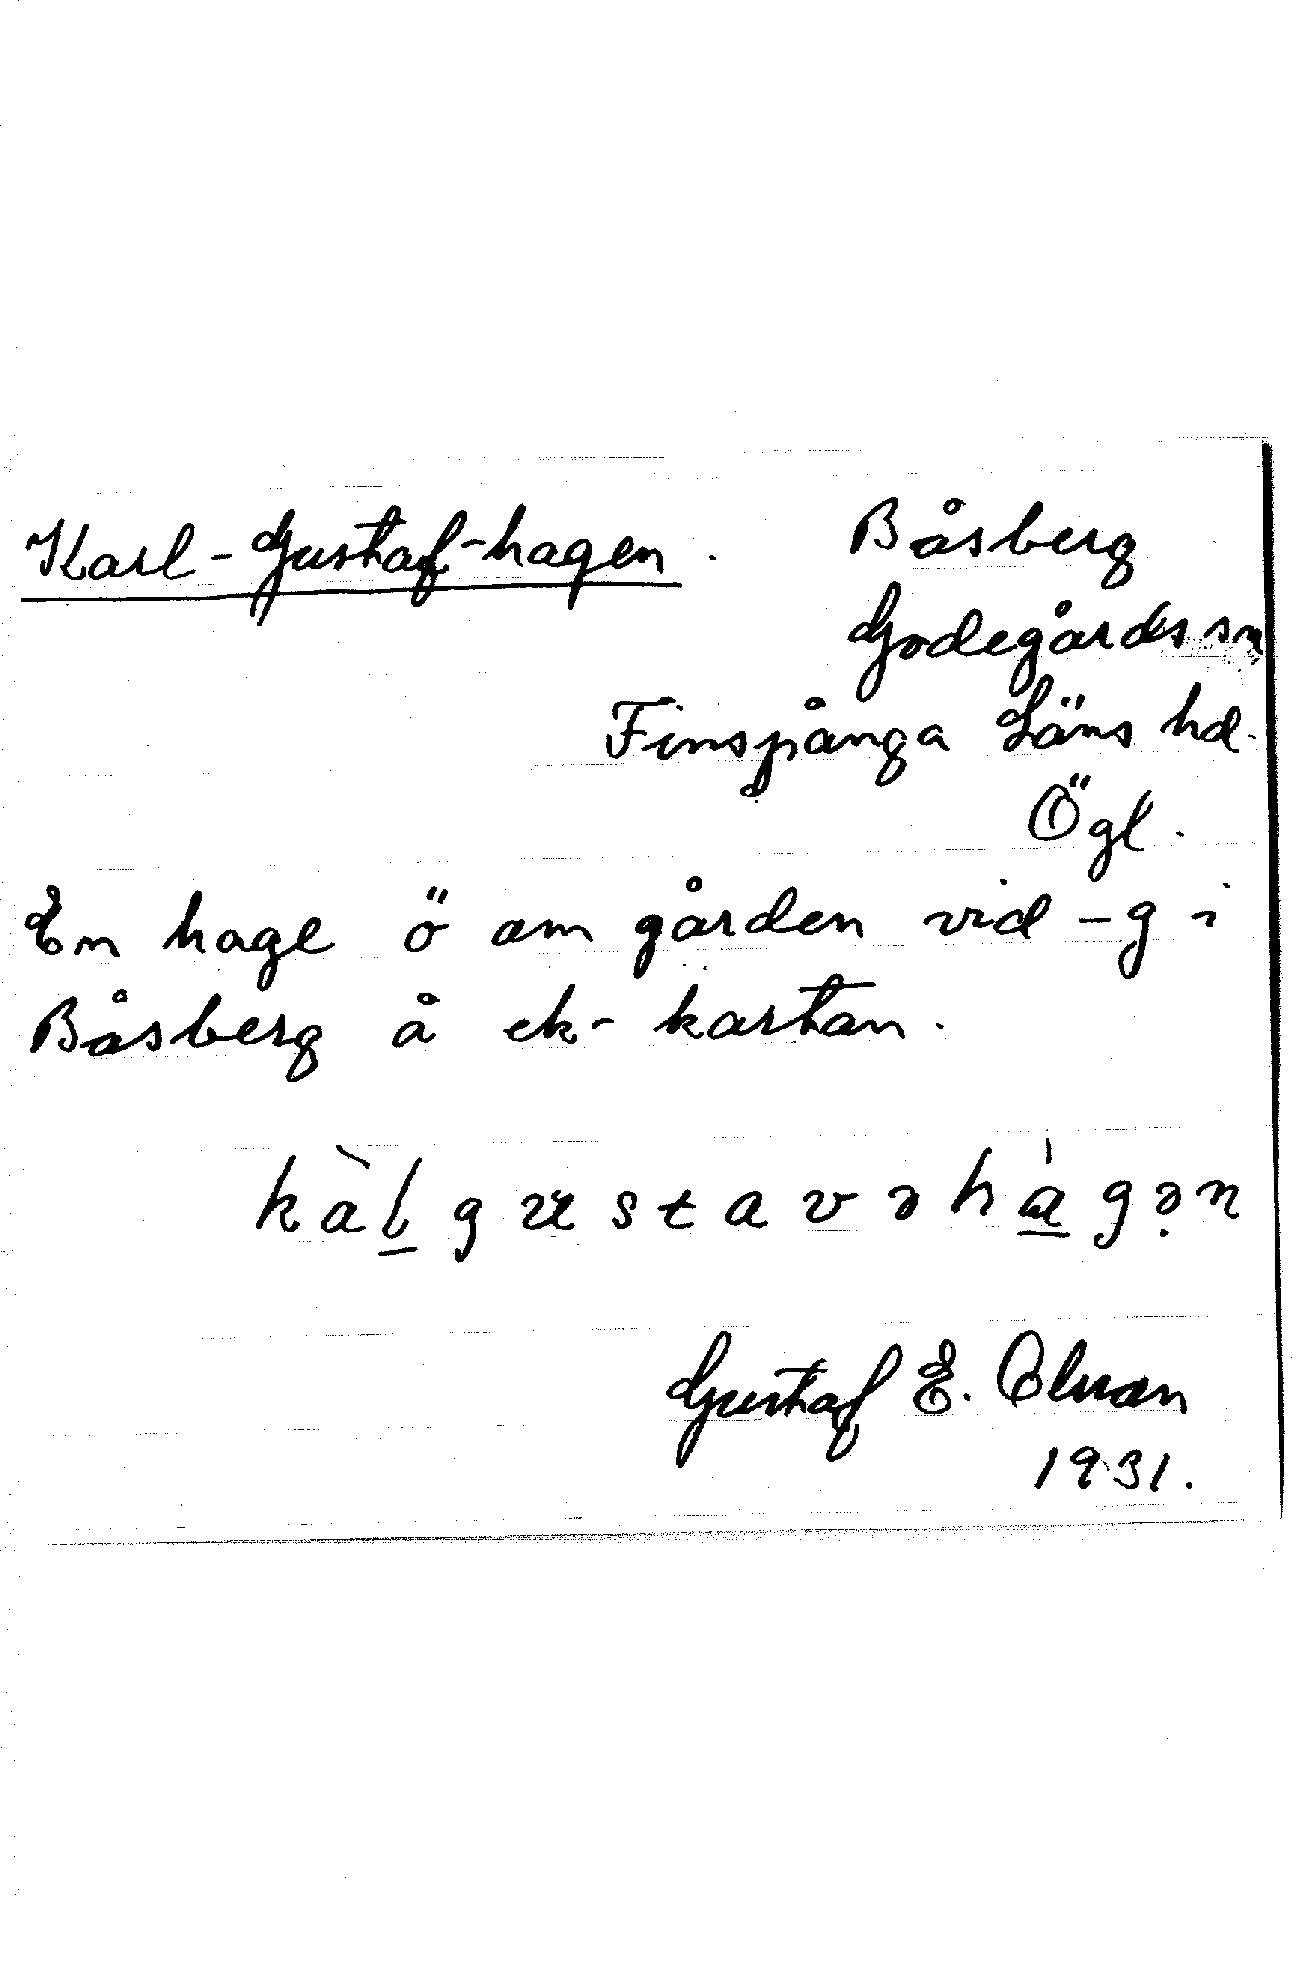 Karl-Gustaf-hagen. Båsberg
Godegårds sn
Finspånga Läns hd.
Ögl.
En hage ö om gården vid -g i
Båsberg å ek-kartan.
kàl̲gustavəhà̲gə̣n
Gustaf E.
1931.